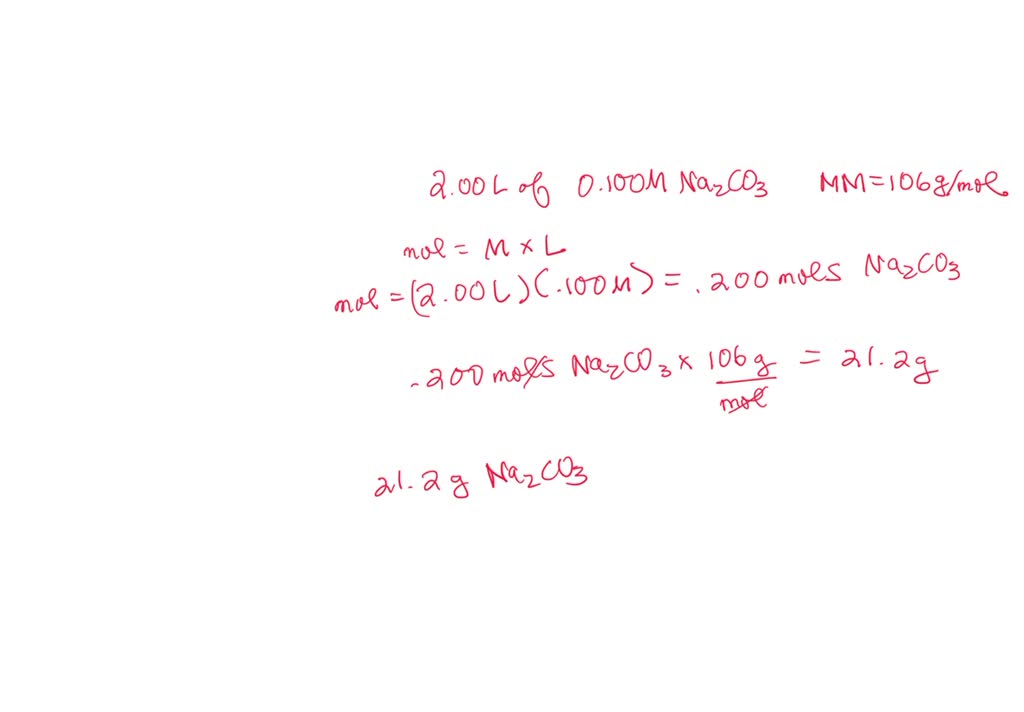 2.00L of 0.100M Na₂CO₃ MM=106g/mol
mol = M × L
mol = (2.00L)(.100M) = .200 mols Na₂CO₃
.200 mols Na₂CO₃ × 106g/mol = 21.2g
21.2g Na₂CO₃